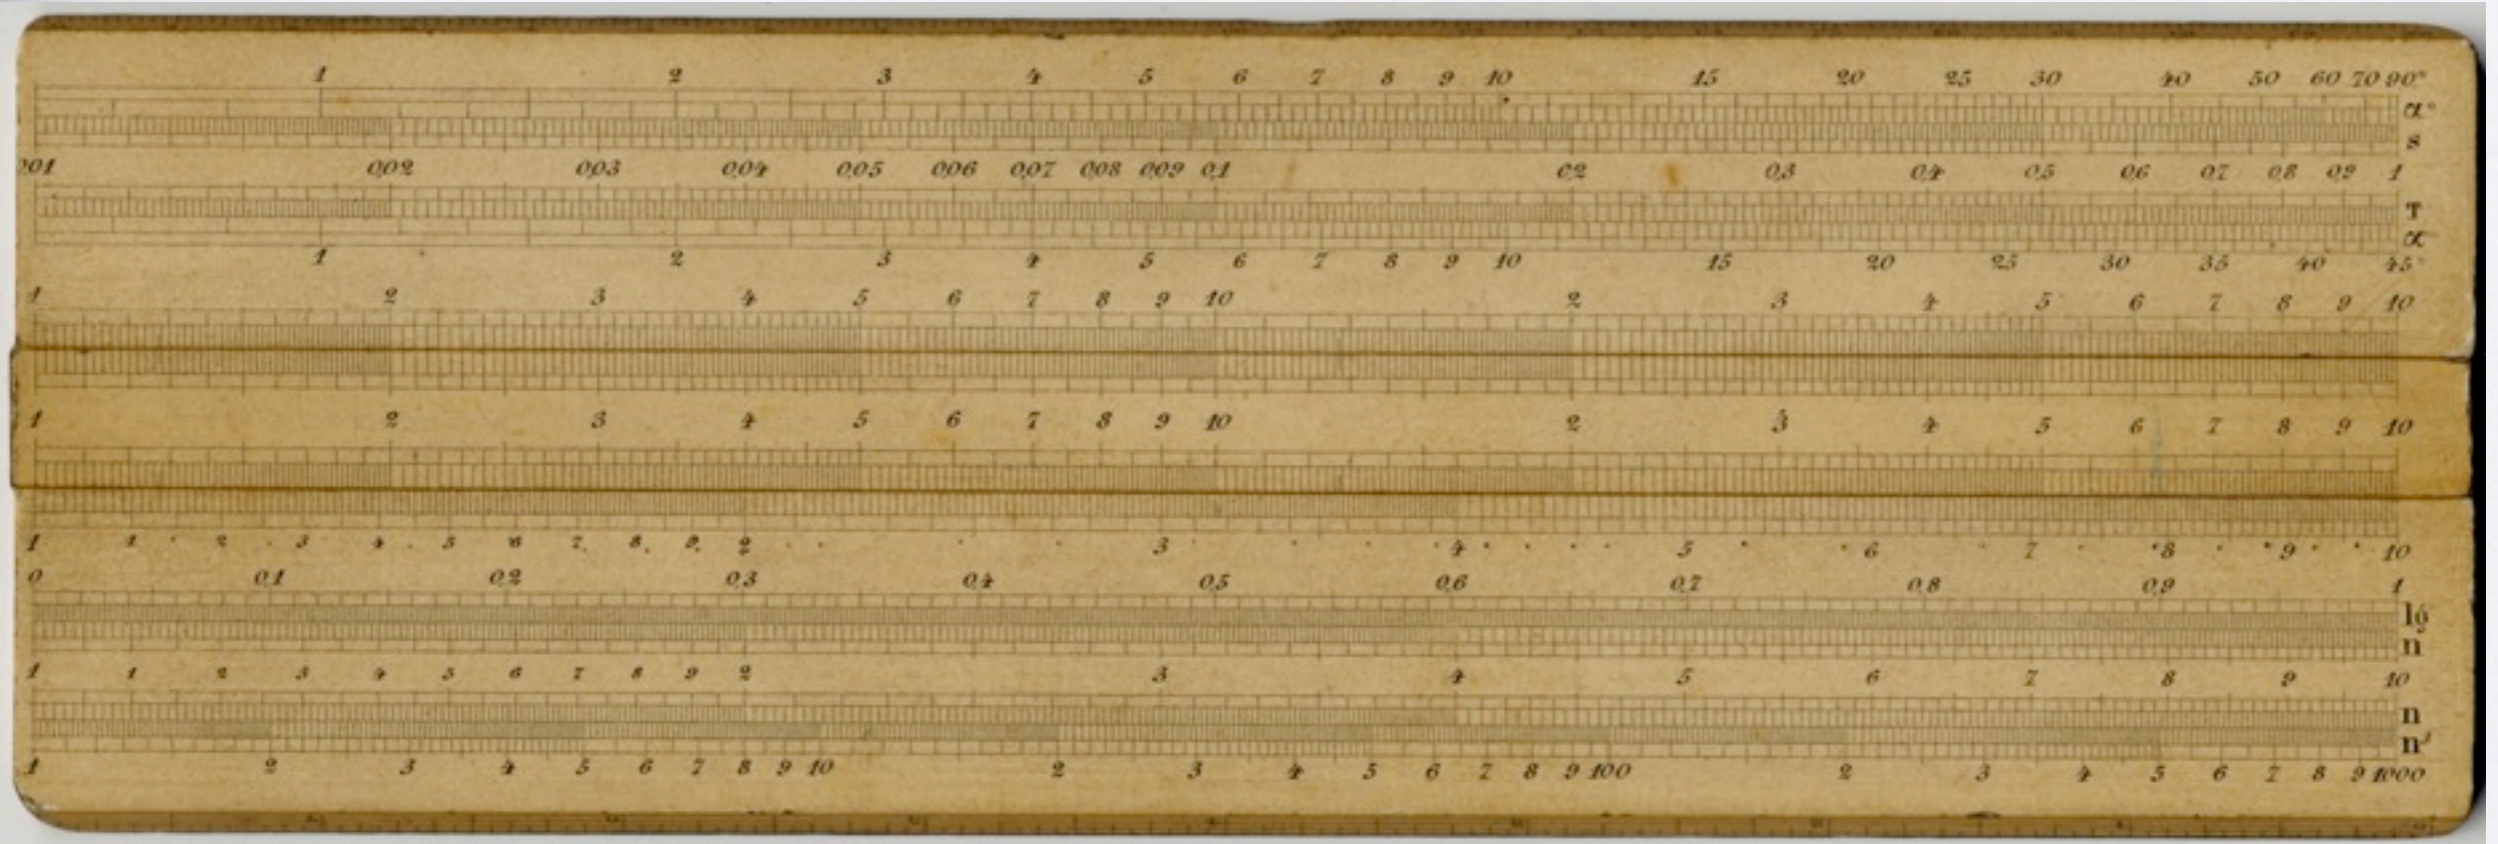 1 2 3 4 5 6 7 8 9 10 15 20 25 30 40 50 60 70 90°
α°
s
0,01 0,02 0,03 0,04 0,05 0,06 0,07 0,08 0,09 0,1 0,2 0,3 0,4 0,5 0,6 0,7 0,8 0,9 1
T
α
1 2 3 4 5 6 7 8 9 10 15 20 25 30 35 40 45°
1 2 3 4 5 6 7 8 9 10 2 3 4 5 6 7 8 9 10
1 2 3 4 5 6 7 8 9 10 2 3 4 5 6 7 8 9 10
1 1 2 3 4 5 6 7 8 9 2 3 4 5 6 7 8 9 10
0 0,1 0,2 0,3 0,4 0,5 0,6 0,7 0,8 0,9 1
lg
n
1 1 2 3 4 5 6 7 8 9 2 3 4 5 6 7 8 9 10
n
n³
1 2 3 4 5 6 7 8 9 10 2 3 4 5 6 7 8 9 100 2 3 4 5 6 7 8 9 1000